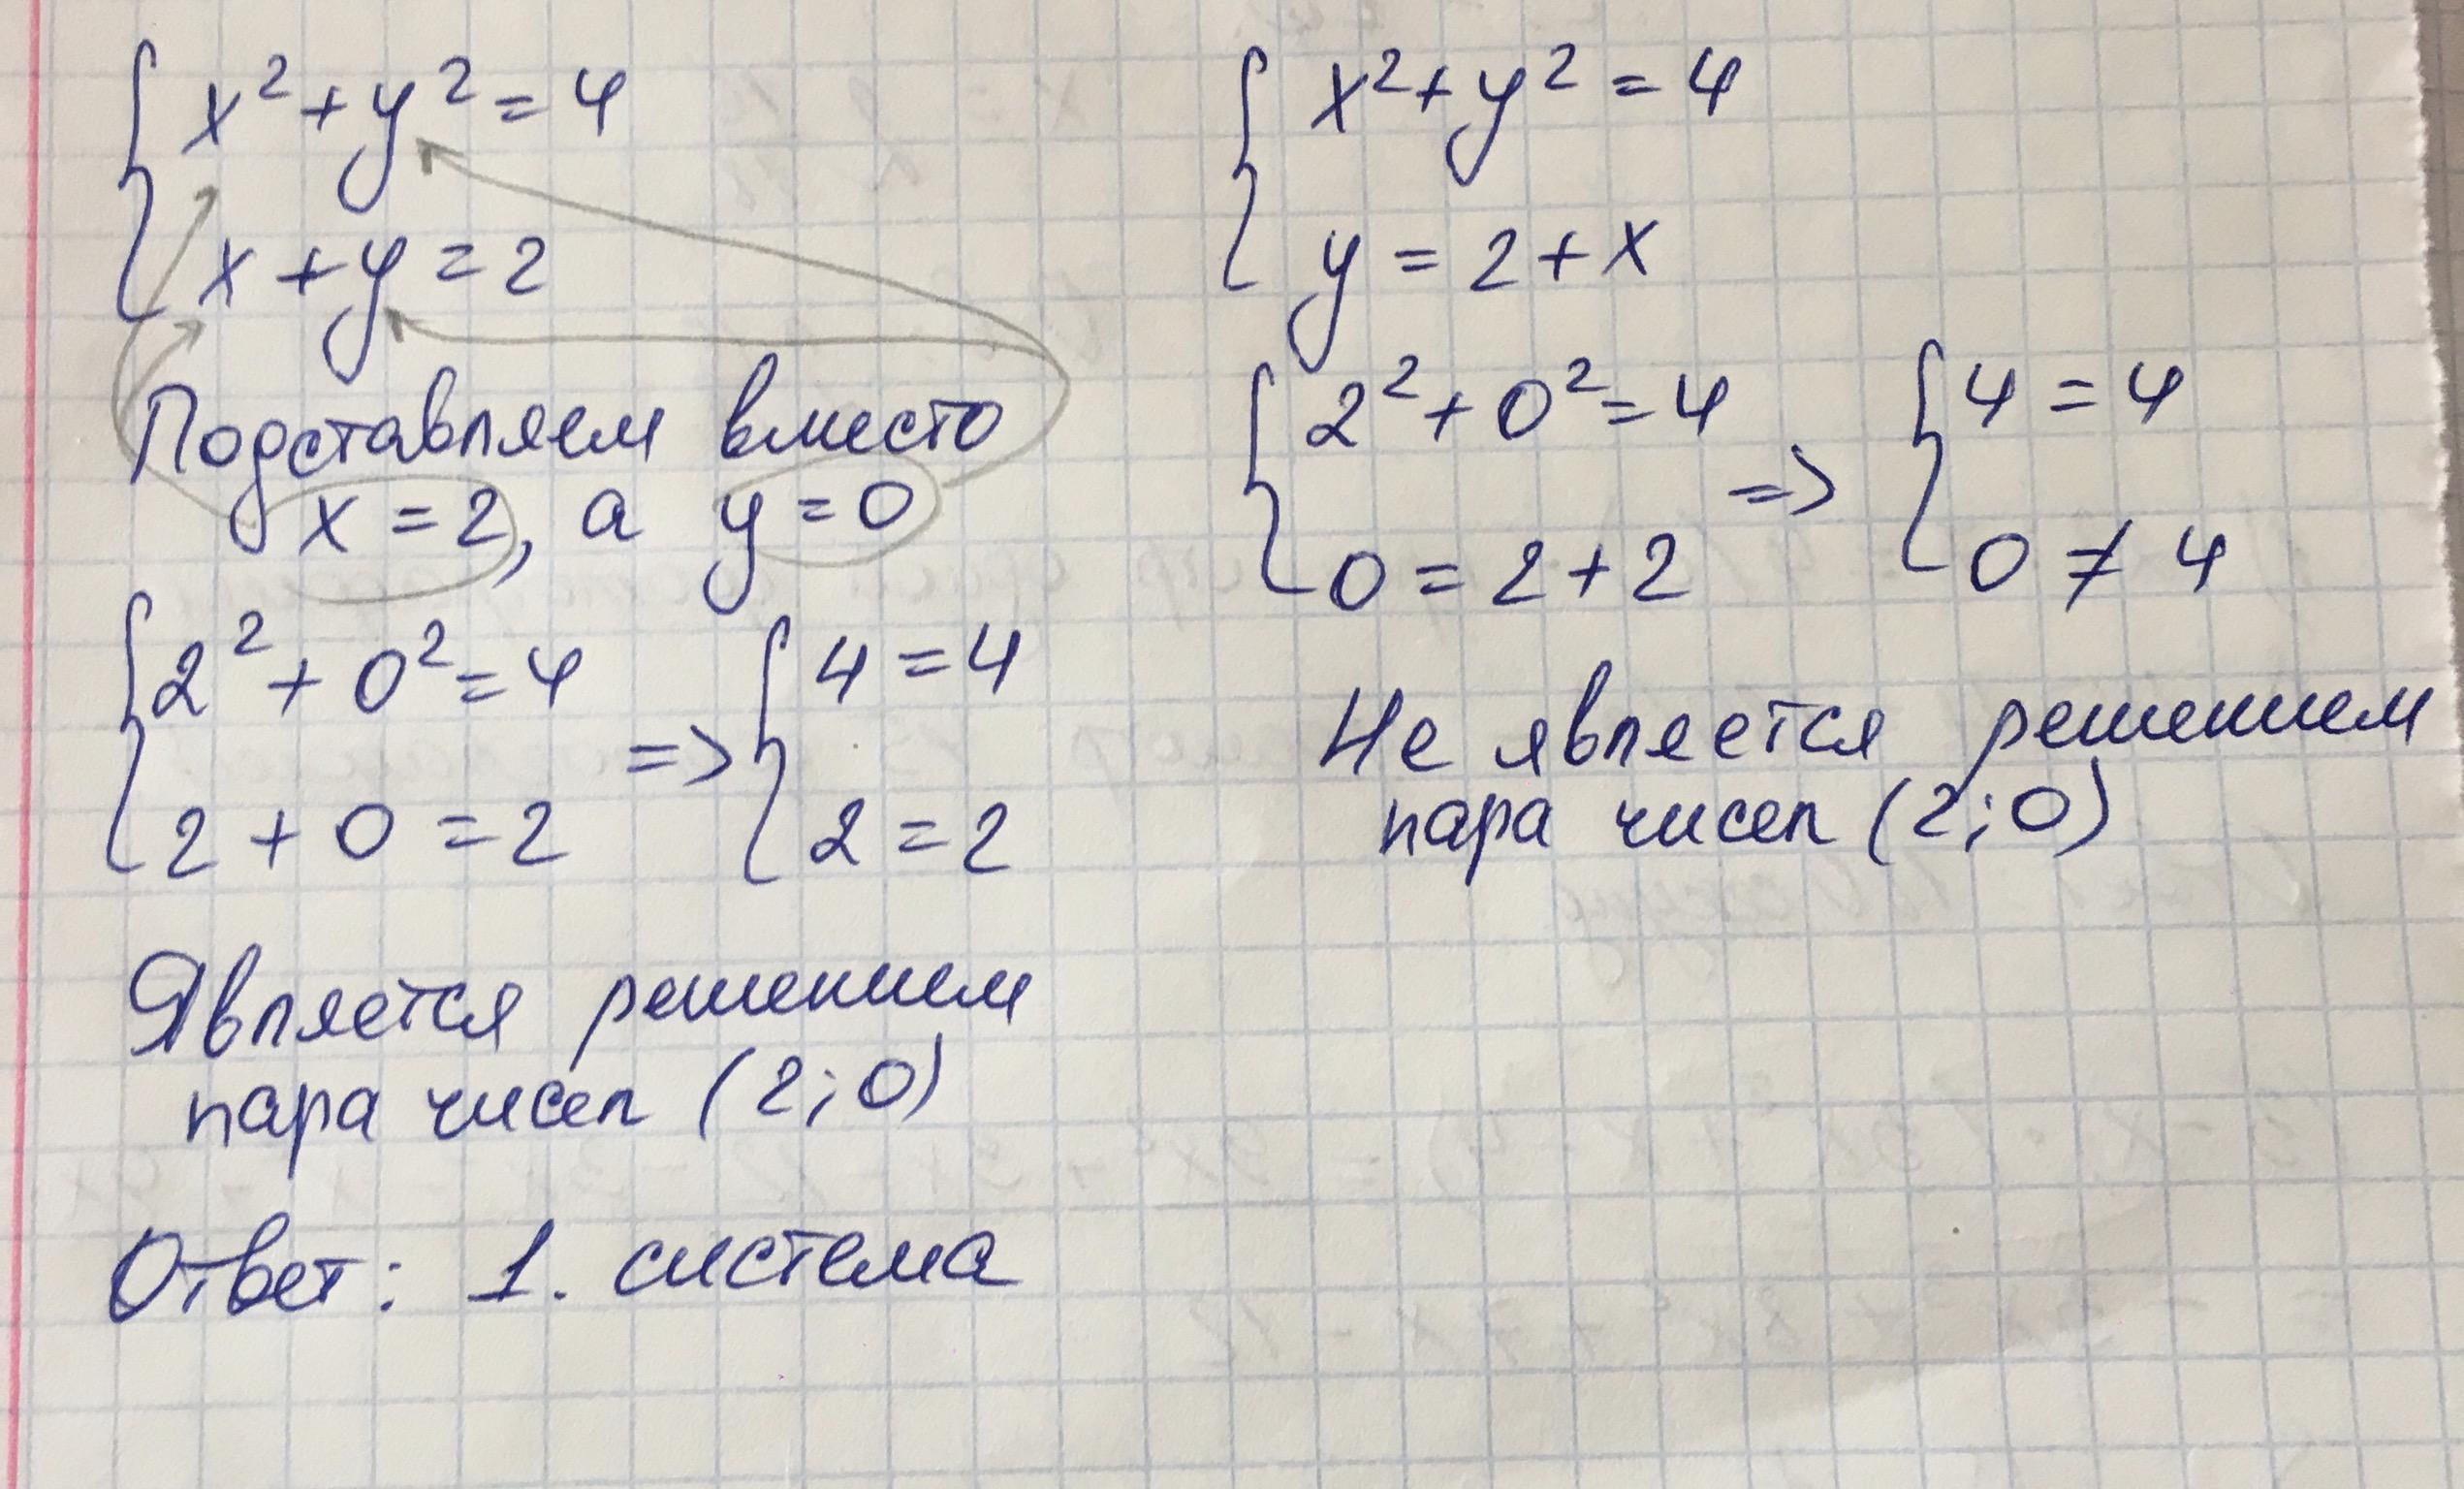 x² + y² = 4
x + y = 2
Подставляем вместо
x = 2, а y = 0
2² + 0² = 4
2 + 0 = 2
=>
4 = 4
2 = 2
Является решением
пара чисел (2; 0)
Ответ: 1. система
x² + y² = 4
y = 2 + x
2² + 0² = 4
0 = 2 + 2
=>
4 = 4
0 ≠ 4
Не является решением
пара чисел (2; 0)